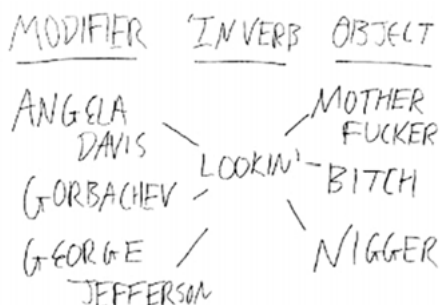 MODIFIER 'IN VERB OBJECT
ANGELA
DAVIS
GORBACHEV
GEORGE
JEFFERSON
LOOKIN'
MOTHER
FUCKER
BITCH
NIGGER